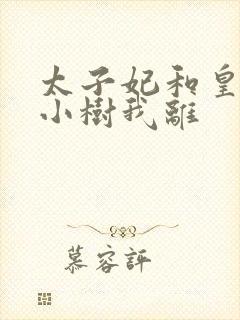 太子妃和皇
小樹我離
慕容評